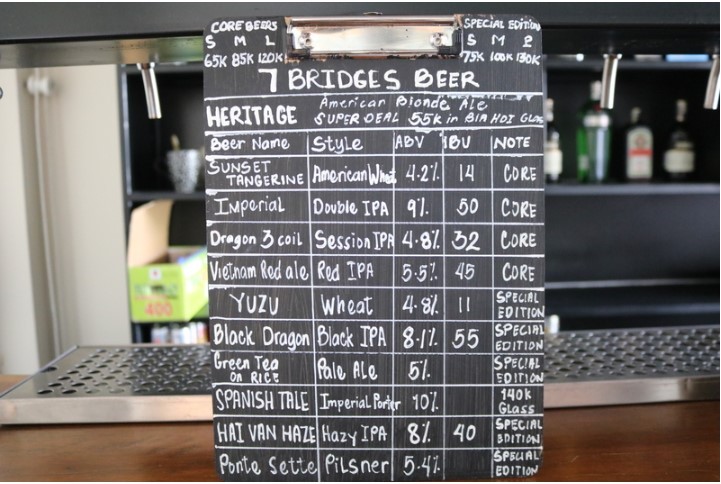 CORE BEERS
S M L
65K 85K 120K
SPECIAL EDITION
S M P
75K 100K 130K
7 BRIDGES BEER
HERITAGE American Blonde Ale
SUPER DEAL 55K in BIA HOI Glass
Beer Name Style ABV IBU NOTE
SUNSET TANGERINE American Wheat 4.2% 14 CORE
Imperial Double IPA 9% 50 CORE
Dragon 3 coil Session IPA 4.8% 32 CORE
Vietnam Red ale Red IPA 5.5% 45 CORE
YUZU Wheat 4.8% 11 SPECIAL EDITION
Black Dragon Black IPA 8.1% 55 SPECIAL EDITION
Green Tea ON RICE Pale Ale 5% SPECIAL EDITION
SPANISH TALE Imperial Porter 10% 140K Glass
HAI VAN HAZE Hazy IPA 8% 40 SPECIAL EDITION
Ponte Sette Pilsner 5.4% SPECIAL EDITION
400